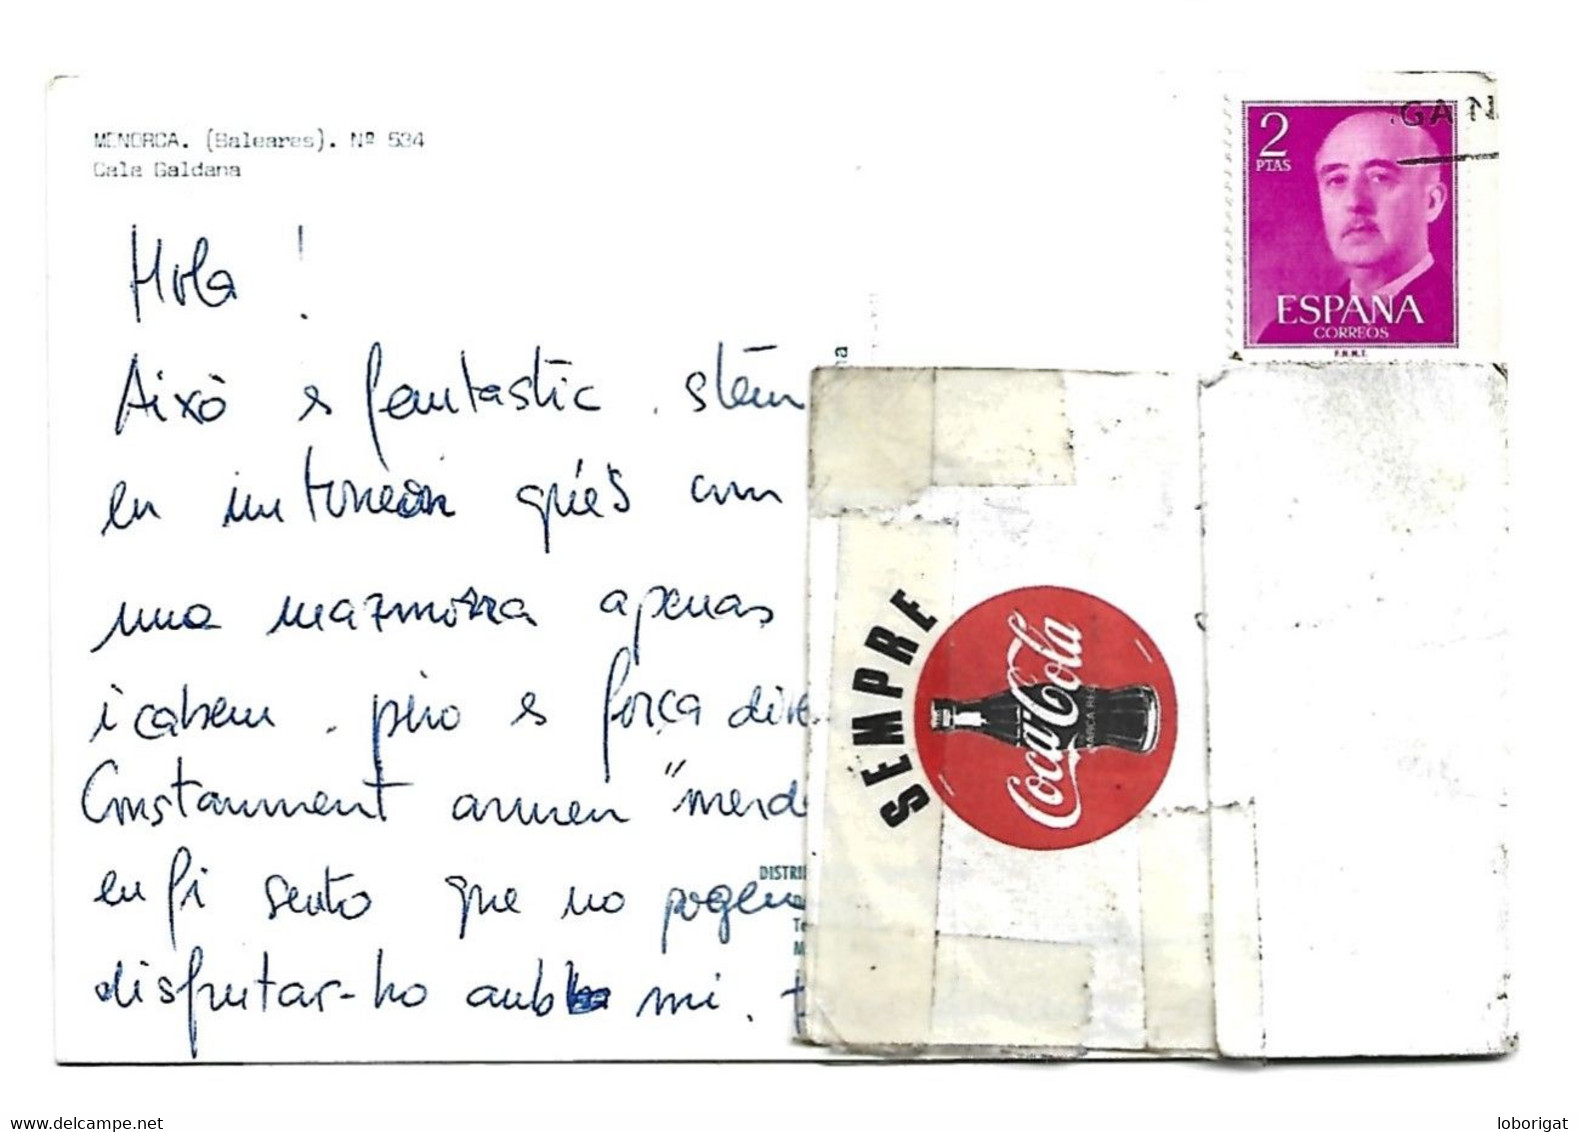 MENORCA. (Baleares). Nº 534
Cala Galdana
2
PTAS
GA N
ESPAÑA
CORREOS
F.N.M.T.
Hola !
Això es fantastic. stem
en un torreón qués com
una mazmorra apenas
i cabem. pero es força dive
Constanment armem "merde
en fi sento que no pogeu
disfrutar-ho amb mi.
DISTRI
SEMPRE
Coca-Cola
MARCA REG
www.delcampe.net
loborigat